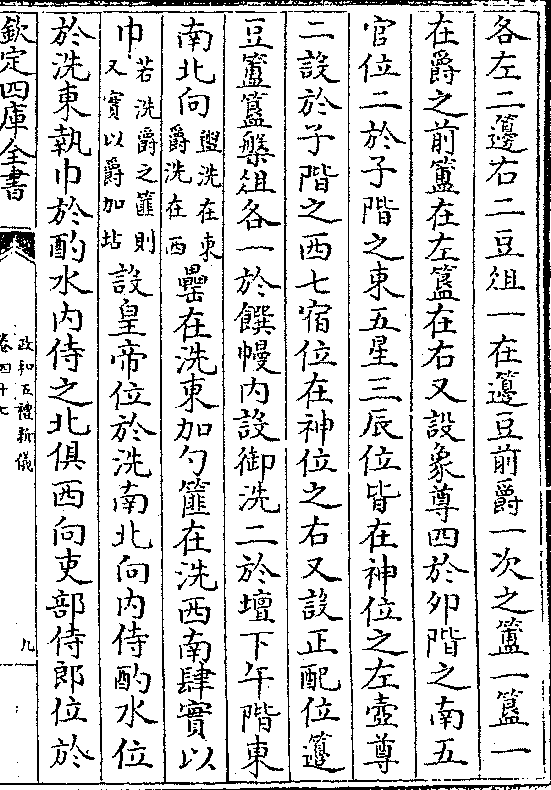 各左二籩右二豆俎一在籩豆前爵一次之簠一簋一
在爵之前簠在左簋在右又設象尊四於卯階之南五
官位二於子階之東五星三辰位皆在神位之左壺尊
二設於子階之西七宿位在神位之右又設正配位籩
豆簠簋槃俎各一於饌幔内設御洗二於壇下午階東
南北向盥洗在東爵洗在西罍在洗東加勺篚在洗西南肆實以
巾若洗爵之篚則又實以爵加坫設皇帝位於洗南北向内侍酌水位
於洗東執巾於酌水内侍之北俱西向吏部侍郎位於
欽定四庫全書
政和五禮新儀
卷四十七
九